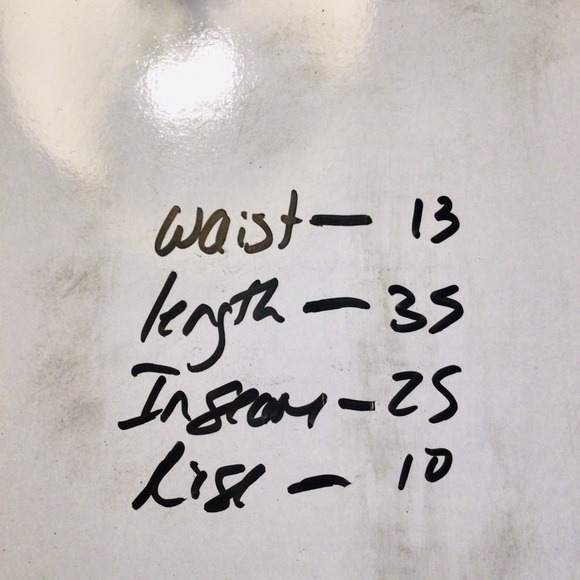 waist - 13
length - 35
Inseam - 25
Rise - 10